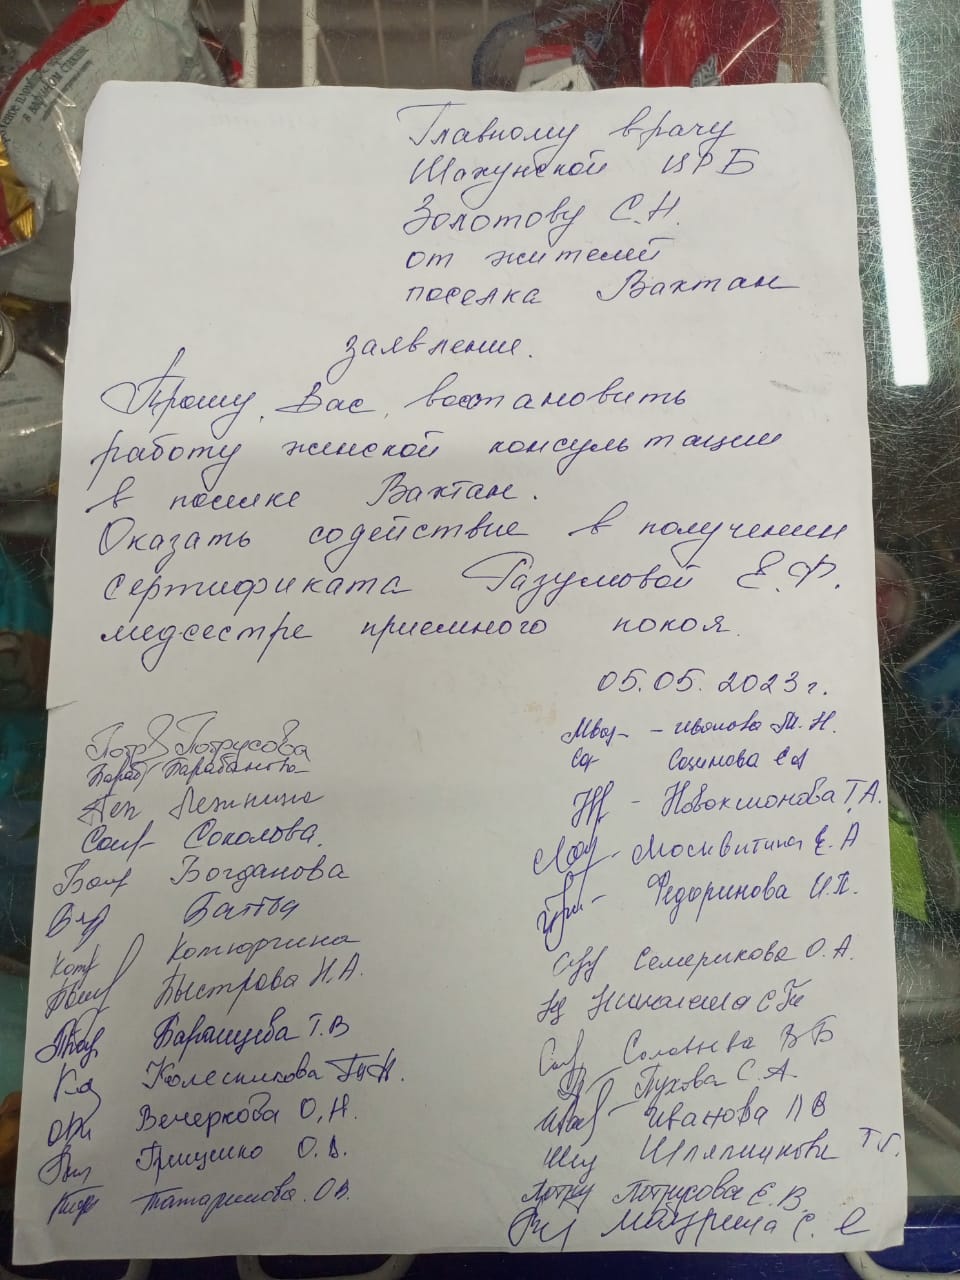 Главному врачу
Шахунской ЦРБ
Золотову С.Н.
от жителей
поселка Вахтан
заявление.
Прошу Вас, восстановить
работу женской консультации
в поселке Вахтан.
Оказать содействие в получении
сертификата Разумовой Е.Ф.
медсестре приемного покоя.
05.05.2023 г.
Потрусова
Барабанова
Лежнина
Соколова.
Богданова
Котюргина
Быстрова Н.А.
Барышева Т.В
Колесникова
Вечеркова О,Н.
Грищенко О.В.
Татаринова. О.В.
Иванова Т.Н.
Созинова
Новокшонова Т.А.
Москвитина Е.А
Федоринова И.П.
Семерикова О.А.
Соловьева В Б
Пухова С.А.
Иванова Л В
Шляпникова Т.Г.
Потрусова Е.В.